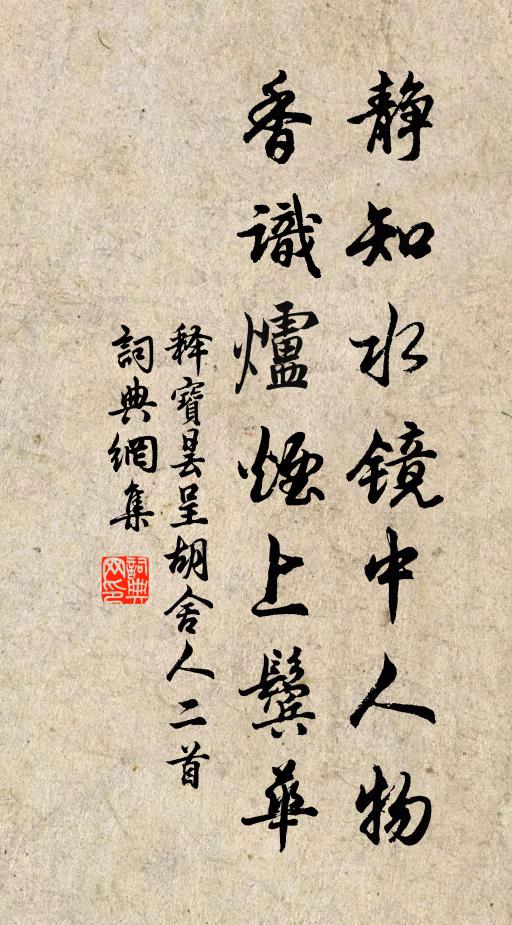 静知水镜中人物
香識爐煙上鬢華
释寶曇呈胡舍人二首
詞典網集
詞典網印